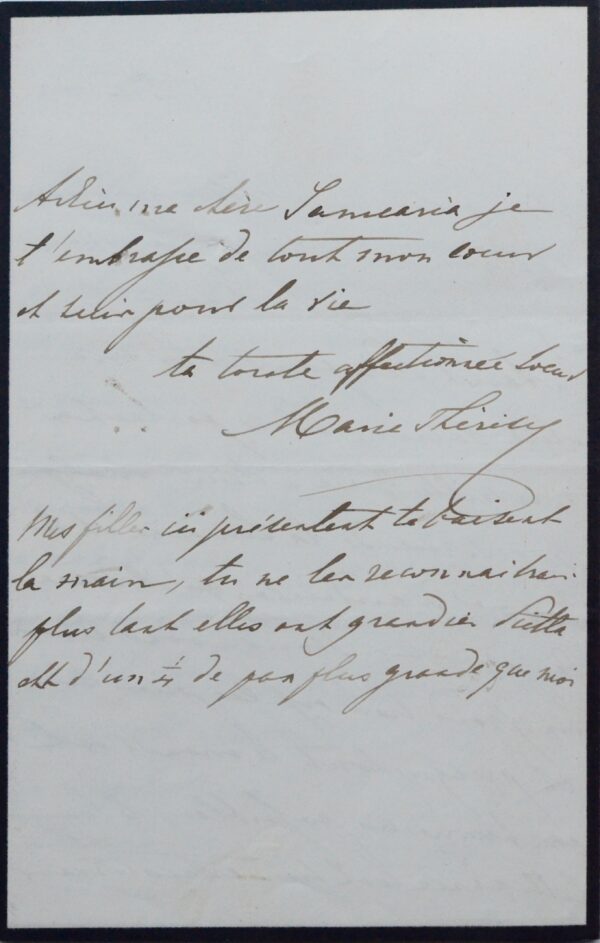 Adieu ma chère je
t'embrasse de tout mon coeur
et suis pour la vie
ta toute affectionnée soeur
Marie Thérèse
Mes filles ici présentent te baisent
la main, tu ne les reconnaitrai
plus tant elles ont grandies
est d'un ¼ de pan plus grande que moi